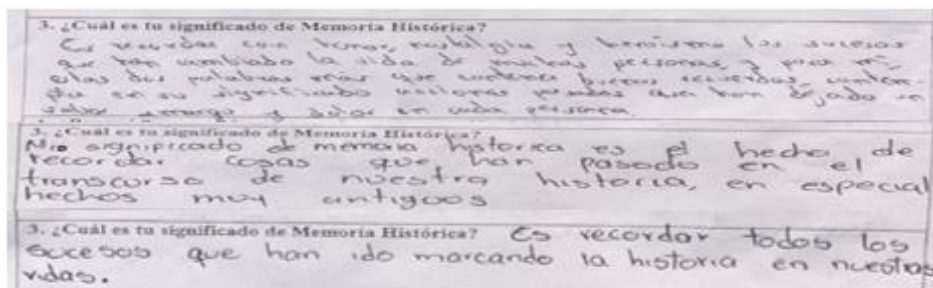 3. ¿Cuál es tu significado de Memoria Histórica?
Es recordar con honor, nostalgia y heroísmo los sucesos
que han cambiado la vida de muchas personas, y para mí
estas dos palabras más que contener buenos recuerdos, contem-
pla en su significado acciones pasadas que han dejado un
sabor amargo y dolor en cada persona.
3. ¿Cuál es tu significado de Memoria Histórica?
Mio significado de memoria historica es el hecho de
recordar cosas que han pasado en el
transcurso de nuestra historia, en especial
hechos muy antiguos
3. ¿Cuál es tu significado de Memoria Histórica? Es recordar todos los
sucesos que han ido marcando la historia en nuestras
vidas.